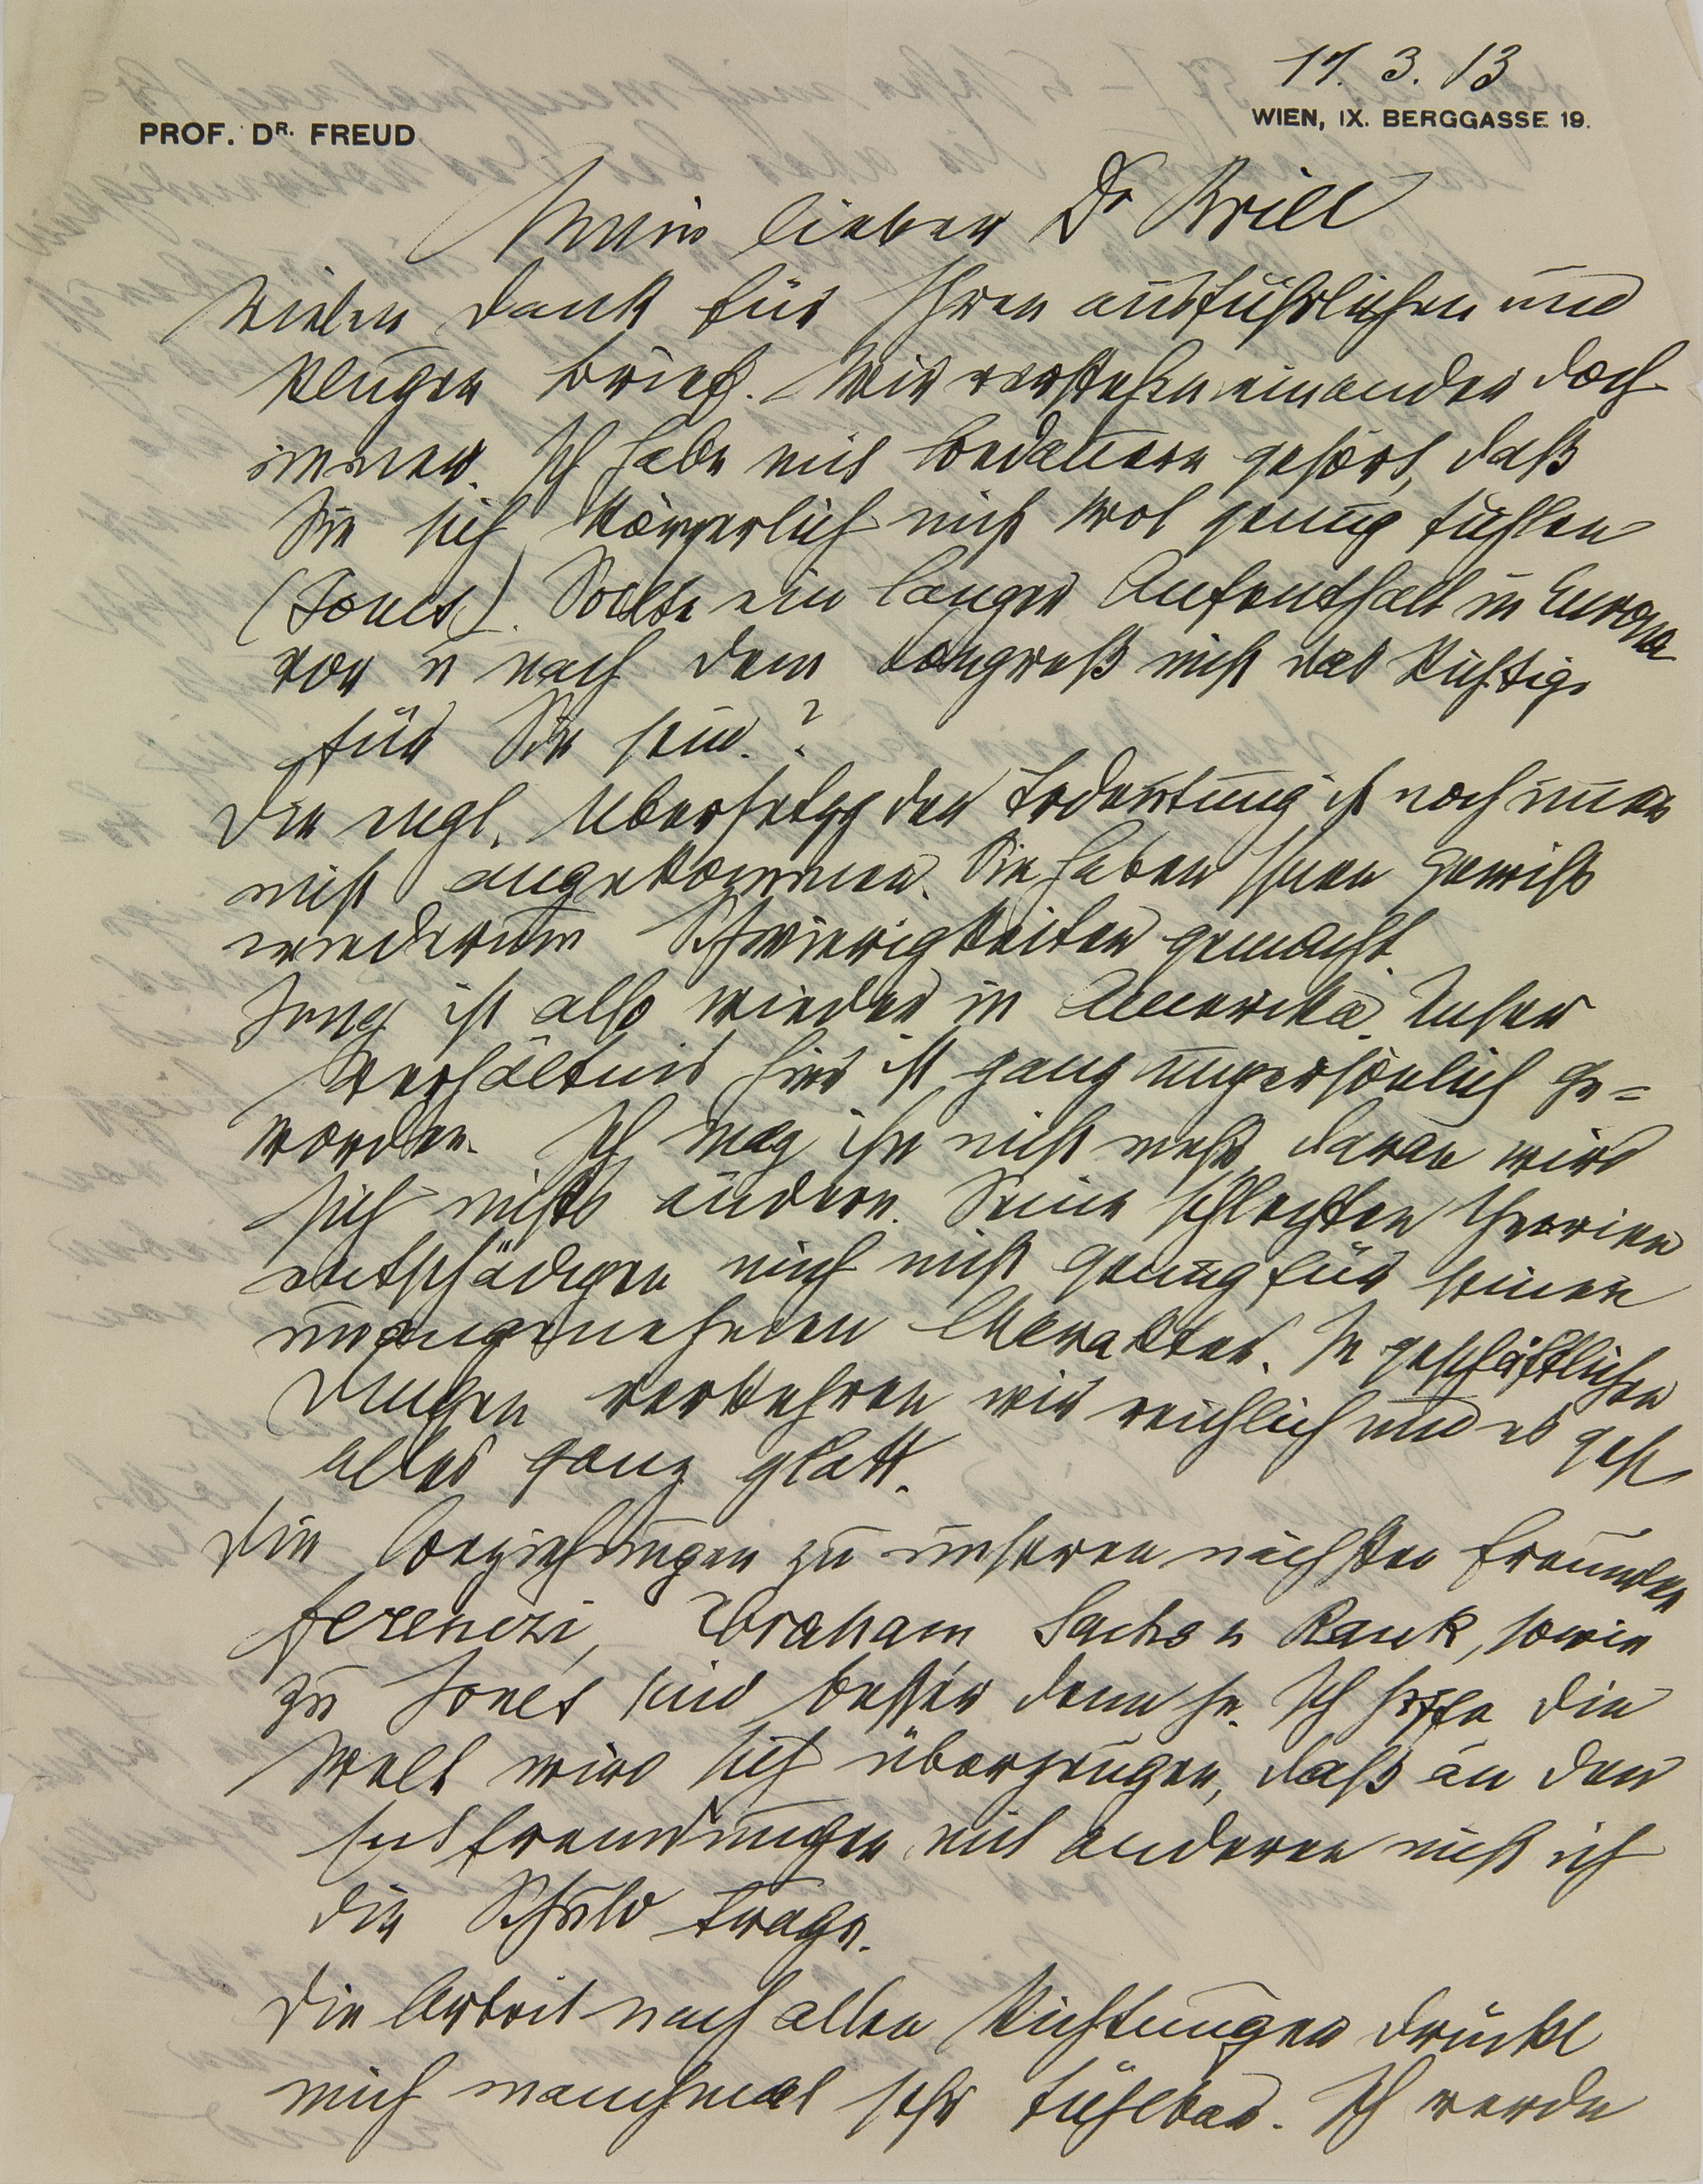 17. 3. 13
PROF. DR. FREUD
WIEN, IX. BERGGASSE 19.
Mein lieber Dr Brill
Vielen Dank für Ihren ausführlichen und
klugen Brief. Wir verstehen einander doch
immer. Ich habe mit Bedauern gehört, daß
Sie sich körperlich nicht wol genug fühlen
(Jones). Sollte ein langer Aufenthalt in Europa
vor u nach dem Congreß nicht das Richtige
für Sie sein?
Die engl. Übersetzg der Tdeutung ist noch immer
nicht angekommen. Sie haben Ihnen gewiß
wiederum Schwierigkeiten gemacht.
Jung ist also wieder in Amerika. Unser
Verhältnis hier ist ganz unpersönlich ge=
worden. Ich mag ihn nicht mehr, daran wird
sich nichts ändern. Seine schlechten Theorien
entschädigen mich nicht genug für seinen
unangenehmen Charakter. In geschäftlichen
Dingen verkehren wir reichlich und es geht
alles ganz glatt.
Die Beziehungen zu unseren nächsten Freunden
Ferenczi, Abraham, Sachs u Rank, sowie
zu Jones sind besser denn je. Ich hoffe die
Welt wird sich überzeugen, daß an den
Entfremdungen mit anderen nicht ich
die Schuld trage.
Die Arbeit nach allen Richtungen drückt
mich manchmal sehr fühlbar. Ich werde